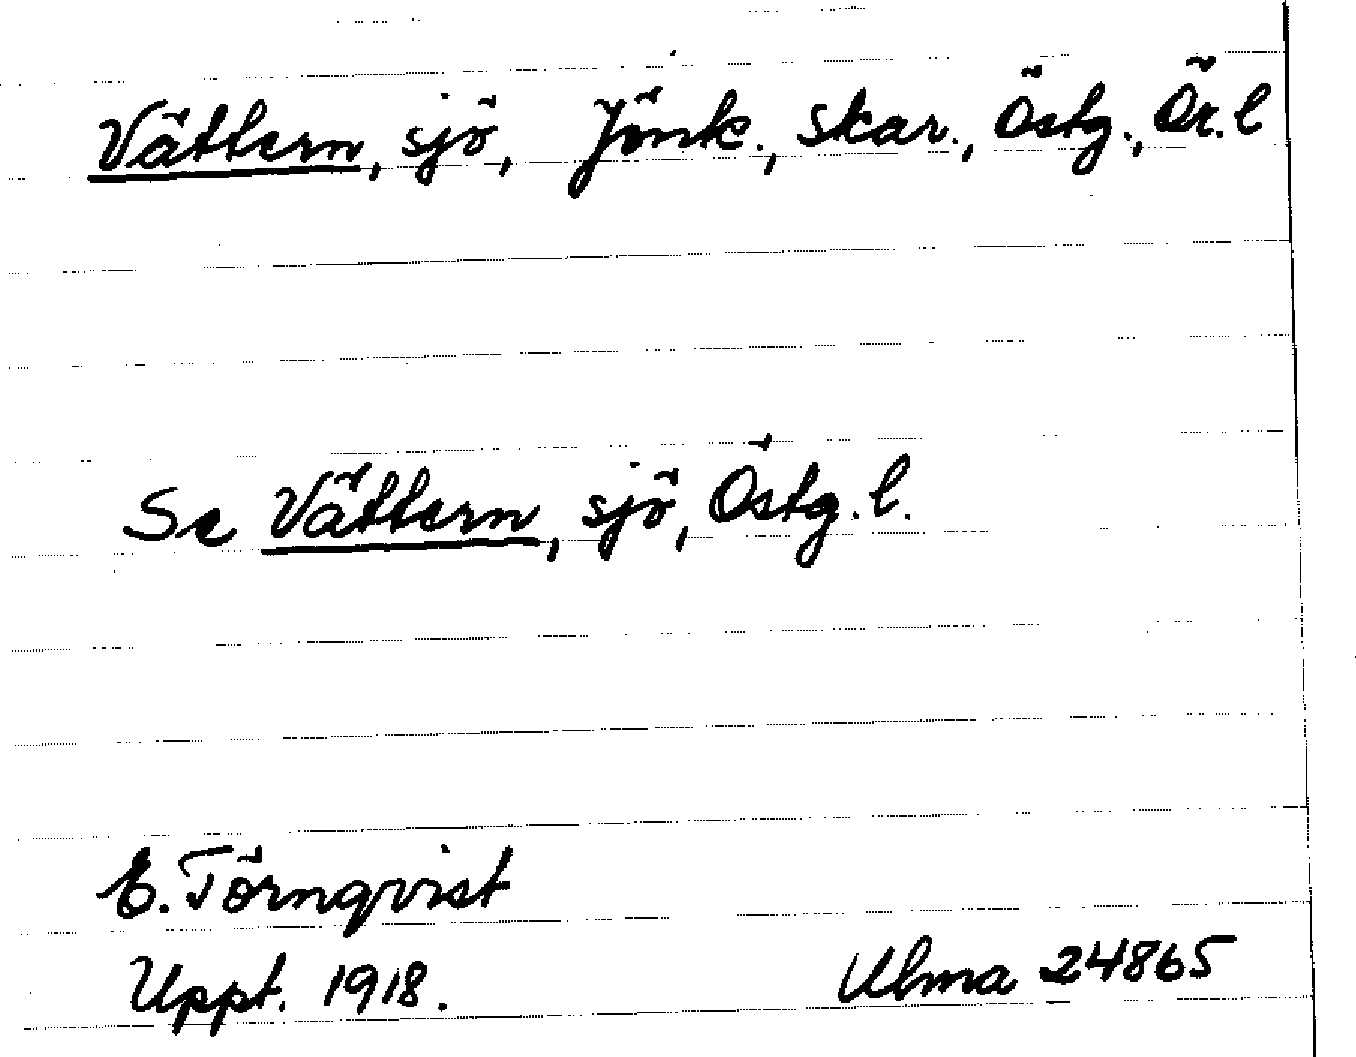 Vättern, sjö, Jönk., Skar., Östg., Ör. l
Se Vättern, sjö, Östg. l.
E. Törnqvist
Uppt. 1918.
Ulma 24865